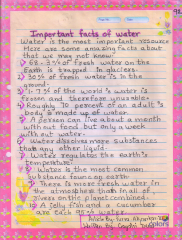 Important facts of water
Water is the most important resource
Here are some amazing facts about
that we may not know!
68.3% of fresh water on the
Earth is trapped in glaciers.
30% of fresh water is in the
ground.
1.7% of the world's water is
frozen and therefore unusable.
Roughly 70 percent of an adult's
body is made up of water.
A person can live about a month
without food, but only a week
without water.
Water dissolves more substances
than any other liquid.
Water regulates the earth's
temperature.
Water is the most common
substance found on earth.
There is more fresh water in
the atmosphere than in all of
rivers on the planet combined.
A jelly fish and a cucumber
are each 95% water.
Made by
Written By